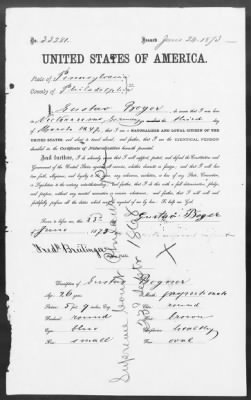 No. 22281. Issued June 24 1873
UNITED STATES OF AMERICA.
State of Pennsylvania
County of Philadelphia
I Gustav Boyer do swear that I was born
in Germany on the third day
of March 1847, that I am a NATURALIZED AND LOYAL CITIZEN OF THE
UNITED STATES and about to travel abroad, and further, that I am the IDENTICAL PERSON
described in the Certificate of Naturalization herewith presented.
And further, I do solemnly swear that I will support, protect and defend the Constitution and
Government of the United States against all enemies, whether domestic or foreign; and that I will bear
true faith, allegiance, and loyalty to the same, any ordinance, resolution, or law of any State, Convention,
or Legislature to the contrary notwithstanding; and further, that I do this with a full determination, pledge,
and purpose, without any mental reservation or evasion whatsoever; and further, that I will well and
faithfully perform all the duties which may be required of me by law. So help me God.
Sworn to before me, this 23
June 1873 Gustav Boyer
Fredk Breitinger
Supreme Court
1868
Description of Gustav
Age: 26 years Mouth: proportionate
Stature: 5 feet 9 inches, Eng. Chin: round
Forehead: round Hair: brown
Eyes: blue Complexion: healthy
Nose: small Face: oval